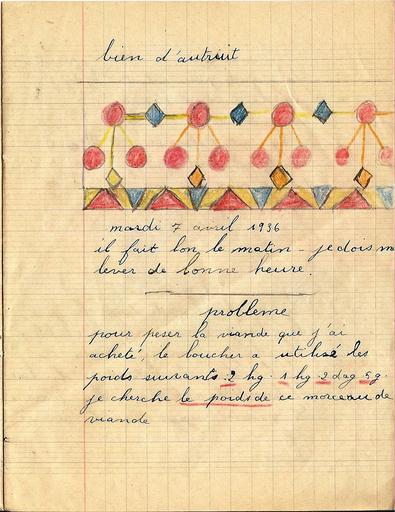 bien d'autrui
mardi 7 avril 1936
il fait bon le matin - je dois m
lever de bonne heure.
problème
pour peser la viande que j'ai
acheté, le boucher a utilisé les
poids suivants 2 hg. 1 hg. 2 dag 5 g.
je cherche le poids de ce morceau de
viande